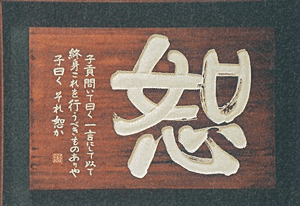 恕
子貢問いて曰く 一言にして以て
終身これを行うべきものありや
子曰く それ恕か